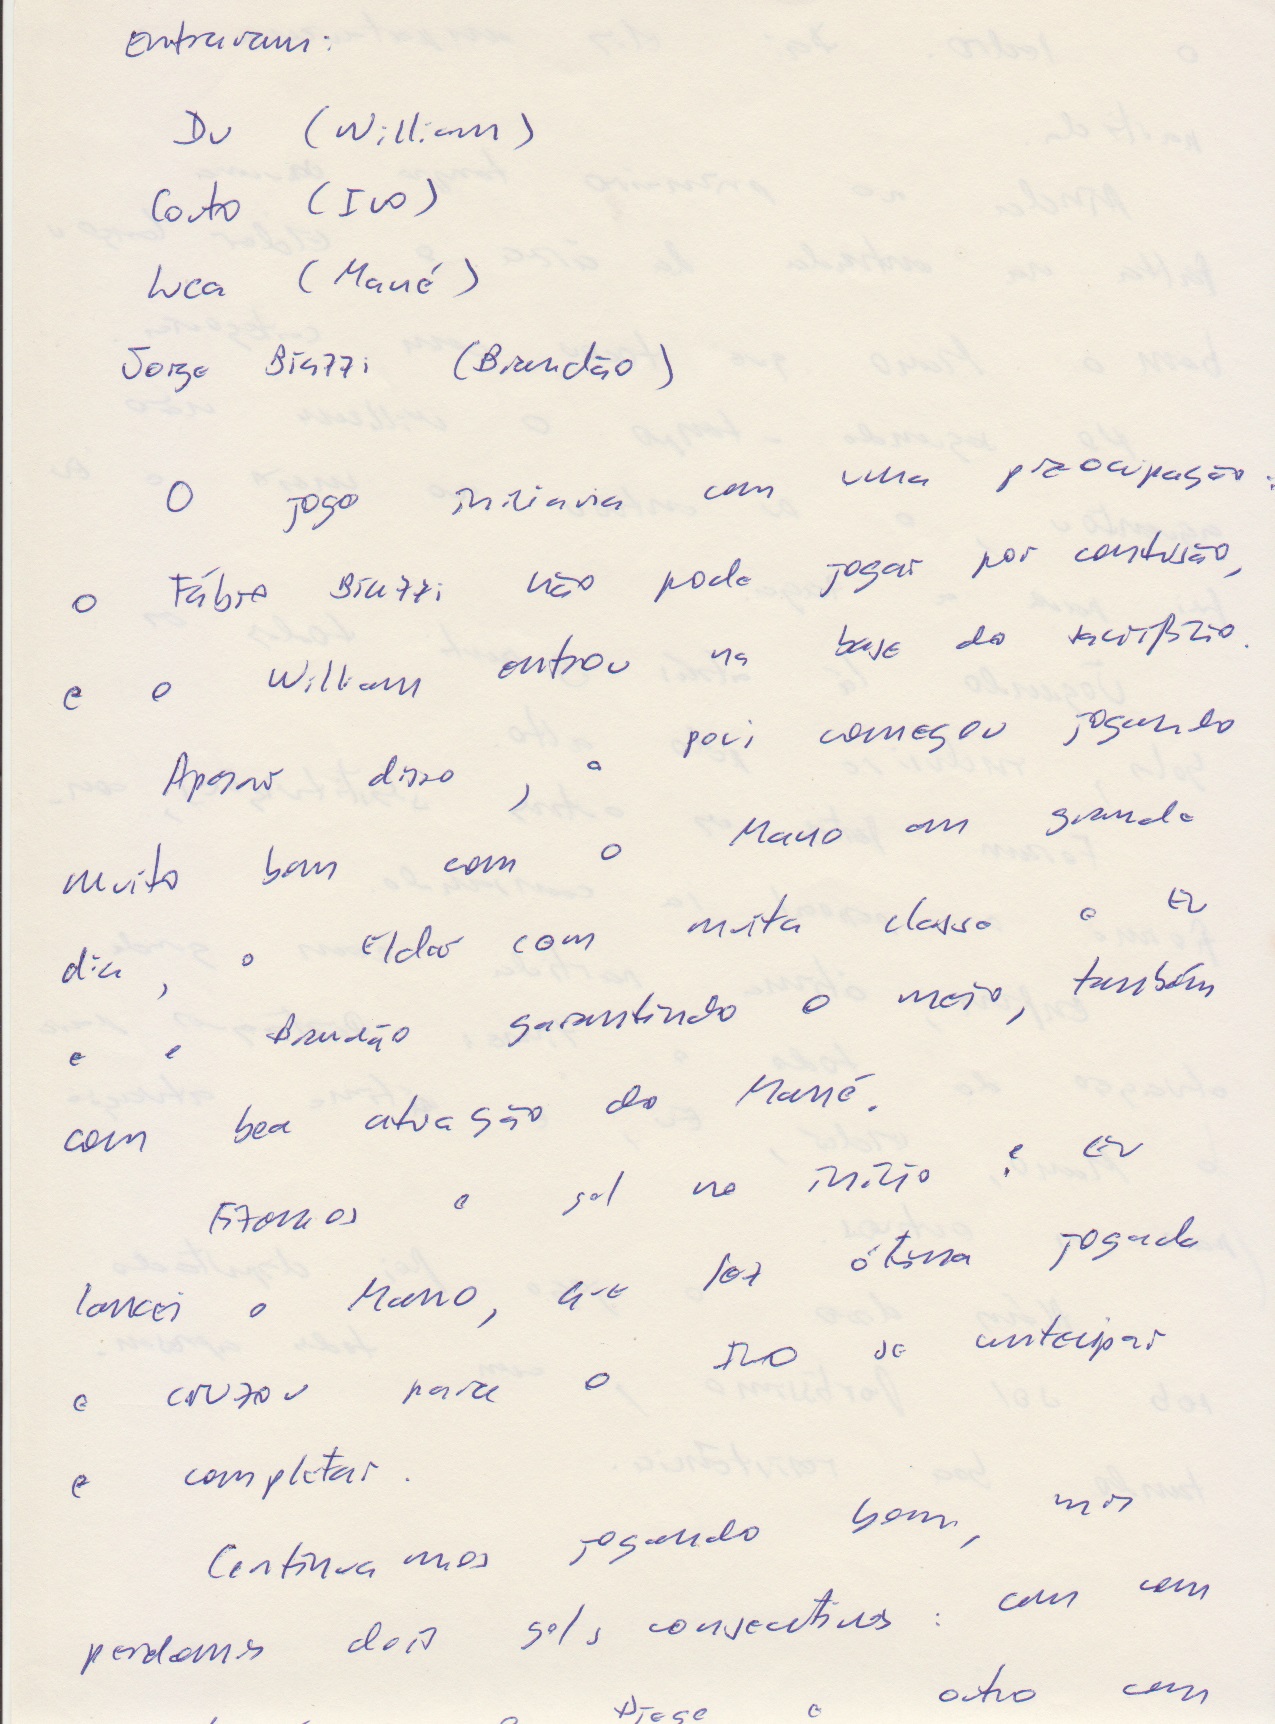 Entravam:
Du (William)
Couto (Ivo)
Luca (Mané)
Jorge Biazzi (Brandão)
O jogo iniciava com uma preocupação:
o Fábio Biazzi não pode jogar por contusão,
e o William entrou na base do sacrifício.
Apesar disso, a poli começou jogando
muito bem com o Mano em grande
dia, o Elder com muita classe e eu
e o Brandão garantindo o meio, também
com boa atuação do Mané.
Fizemos o gol no início: eu
lancei o Mano, que fez ótima jogada
e cruzou para o Ivo se antecipar
e completar.
Continuamos jogando bem, mas
perdemos dois gols consecutivos: com
Diego e outro com